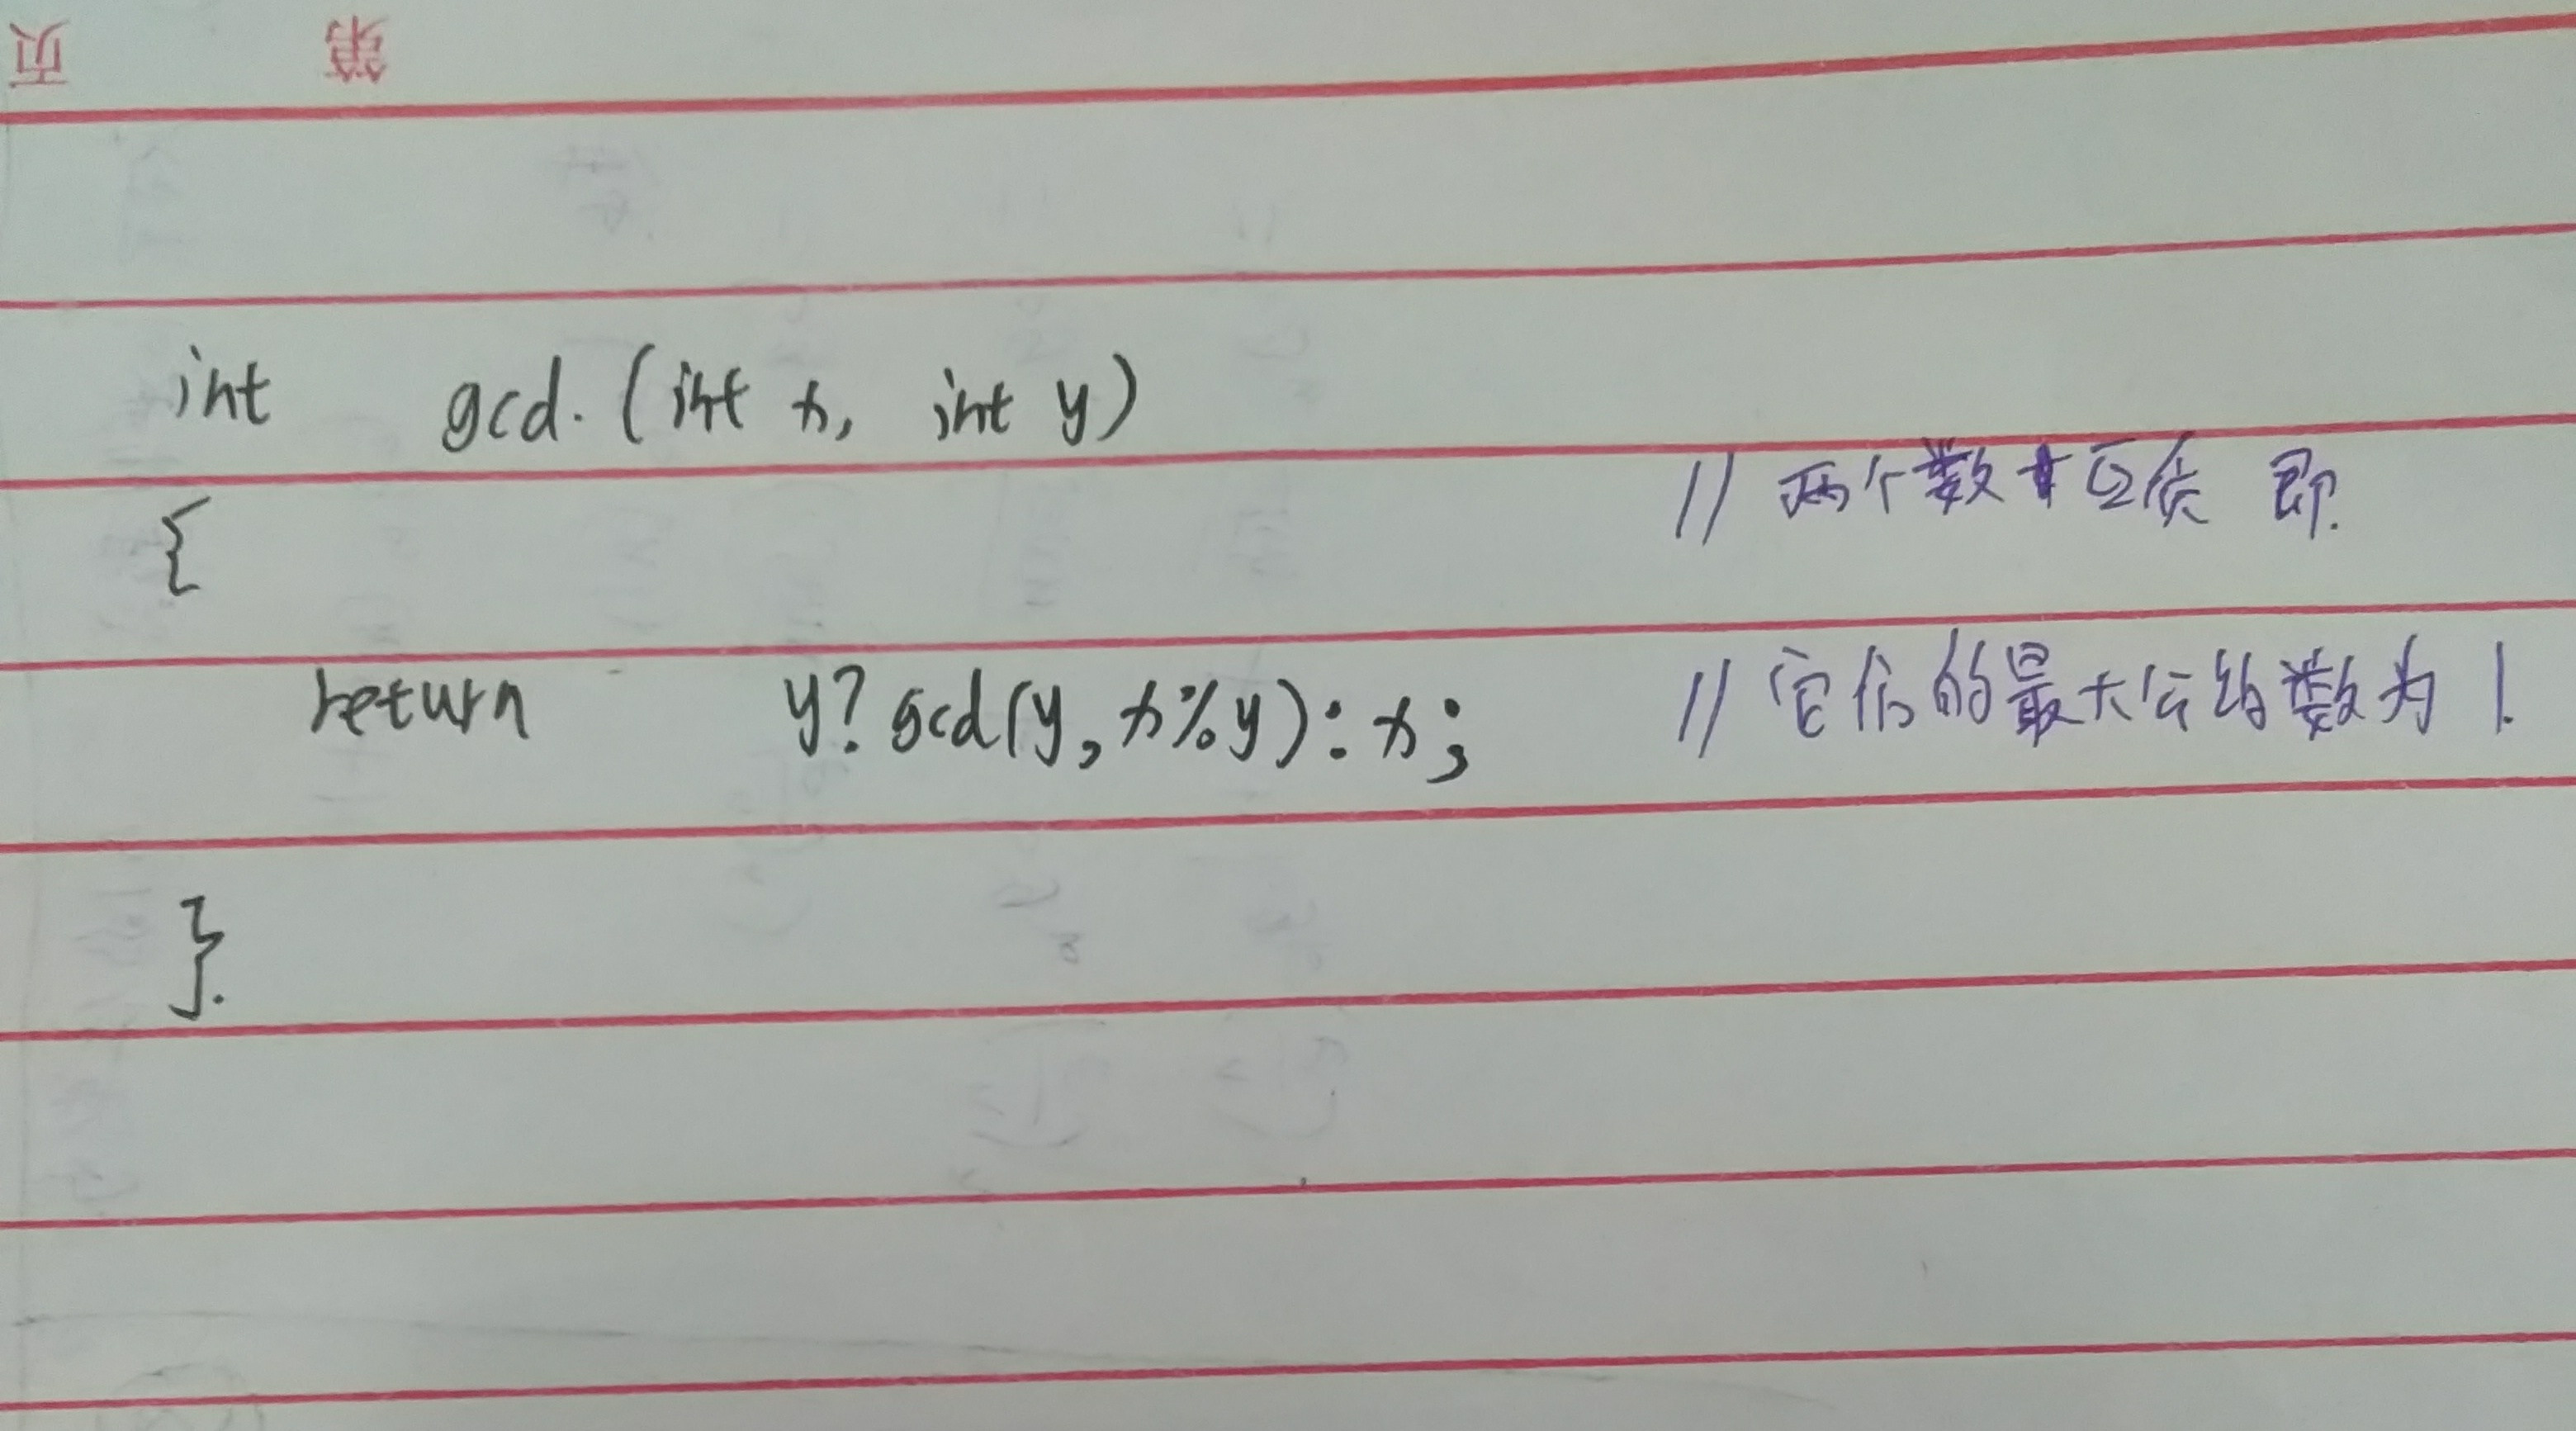 页 第
int gcd. (int x, int y)
{ // 两个数互质 即.
return y? gcd(y, x%y) : x; // 它们的最大公约数为 1.
}.